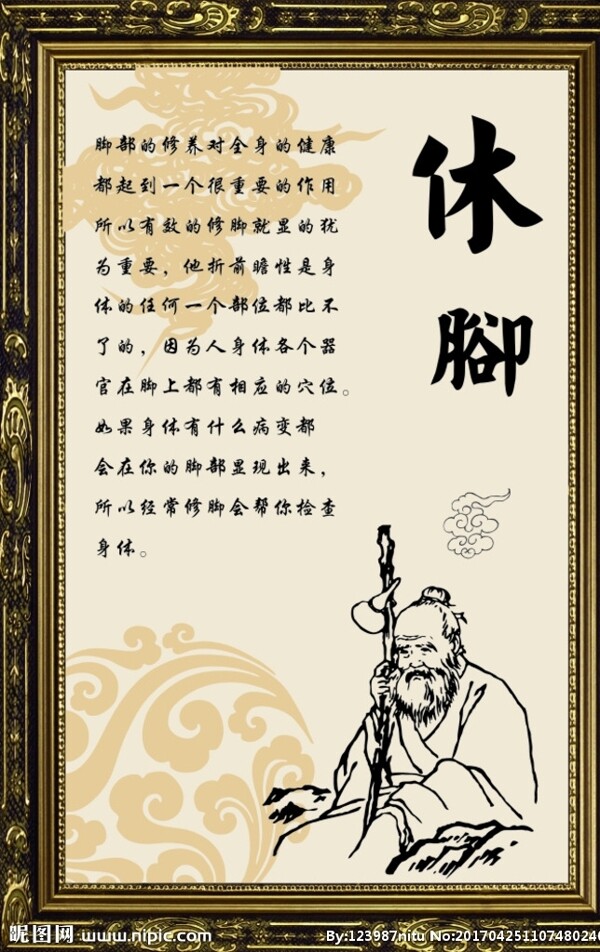 休
腳
脚部的修养对全身的健康
都起到一个很重要的作用
所以有效的修脚就显的犹
为重要，他折前瞻性是身
体的任何一个部位都比不
了的，因为人身体各个器
官在脚上都有相应的穴位。
如果身体有什么病变都
会在你的脚部显现出来，
所以经常修脚会帮你检查
身体。
昵图网 www.nipic.com
By:123987nitu No:20170425110748024